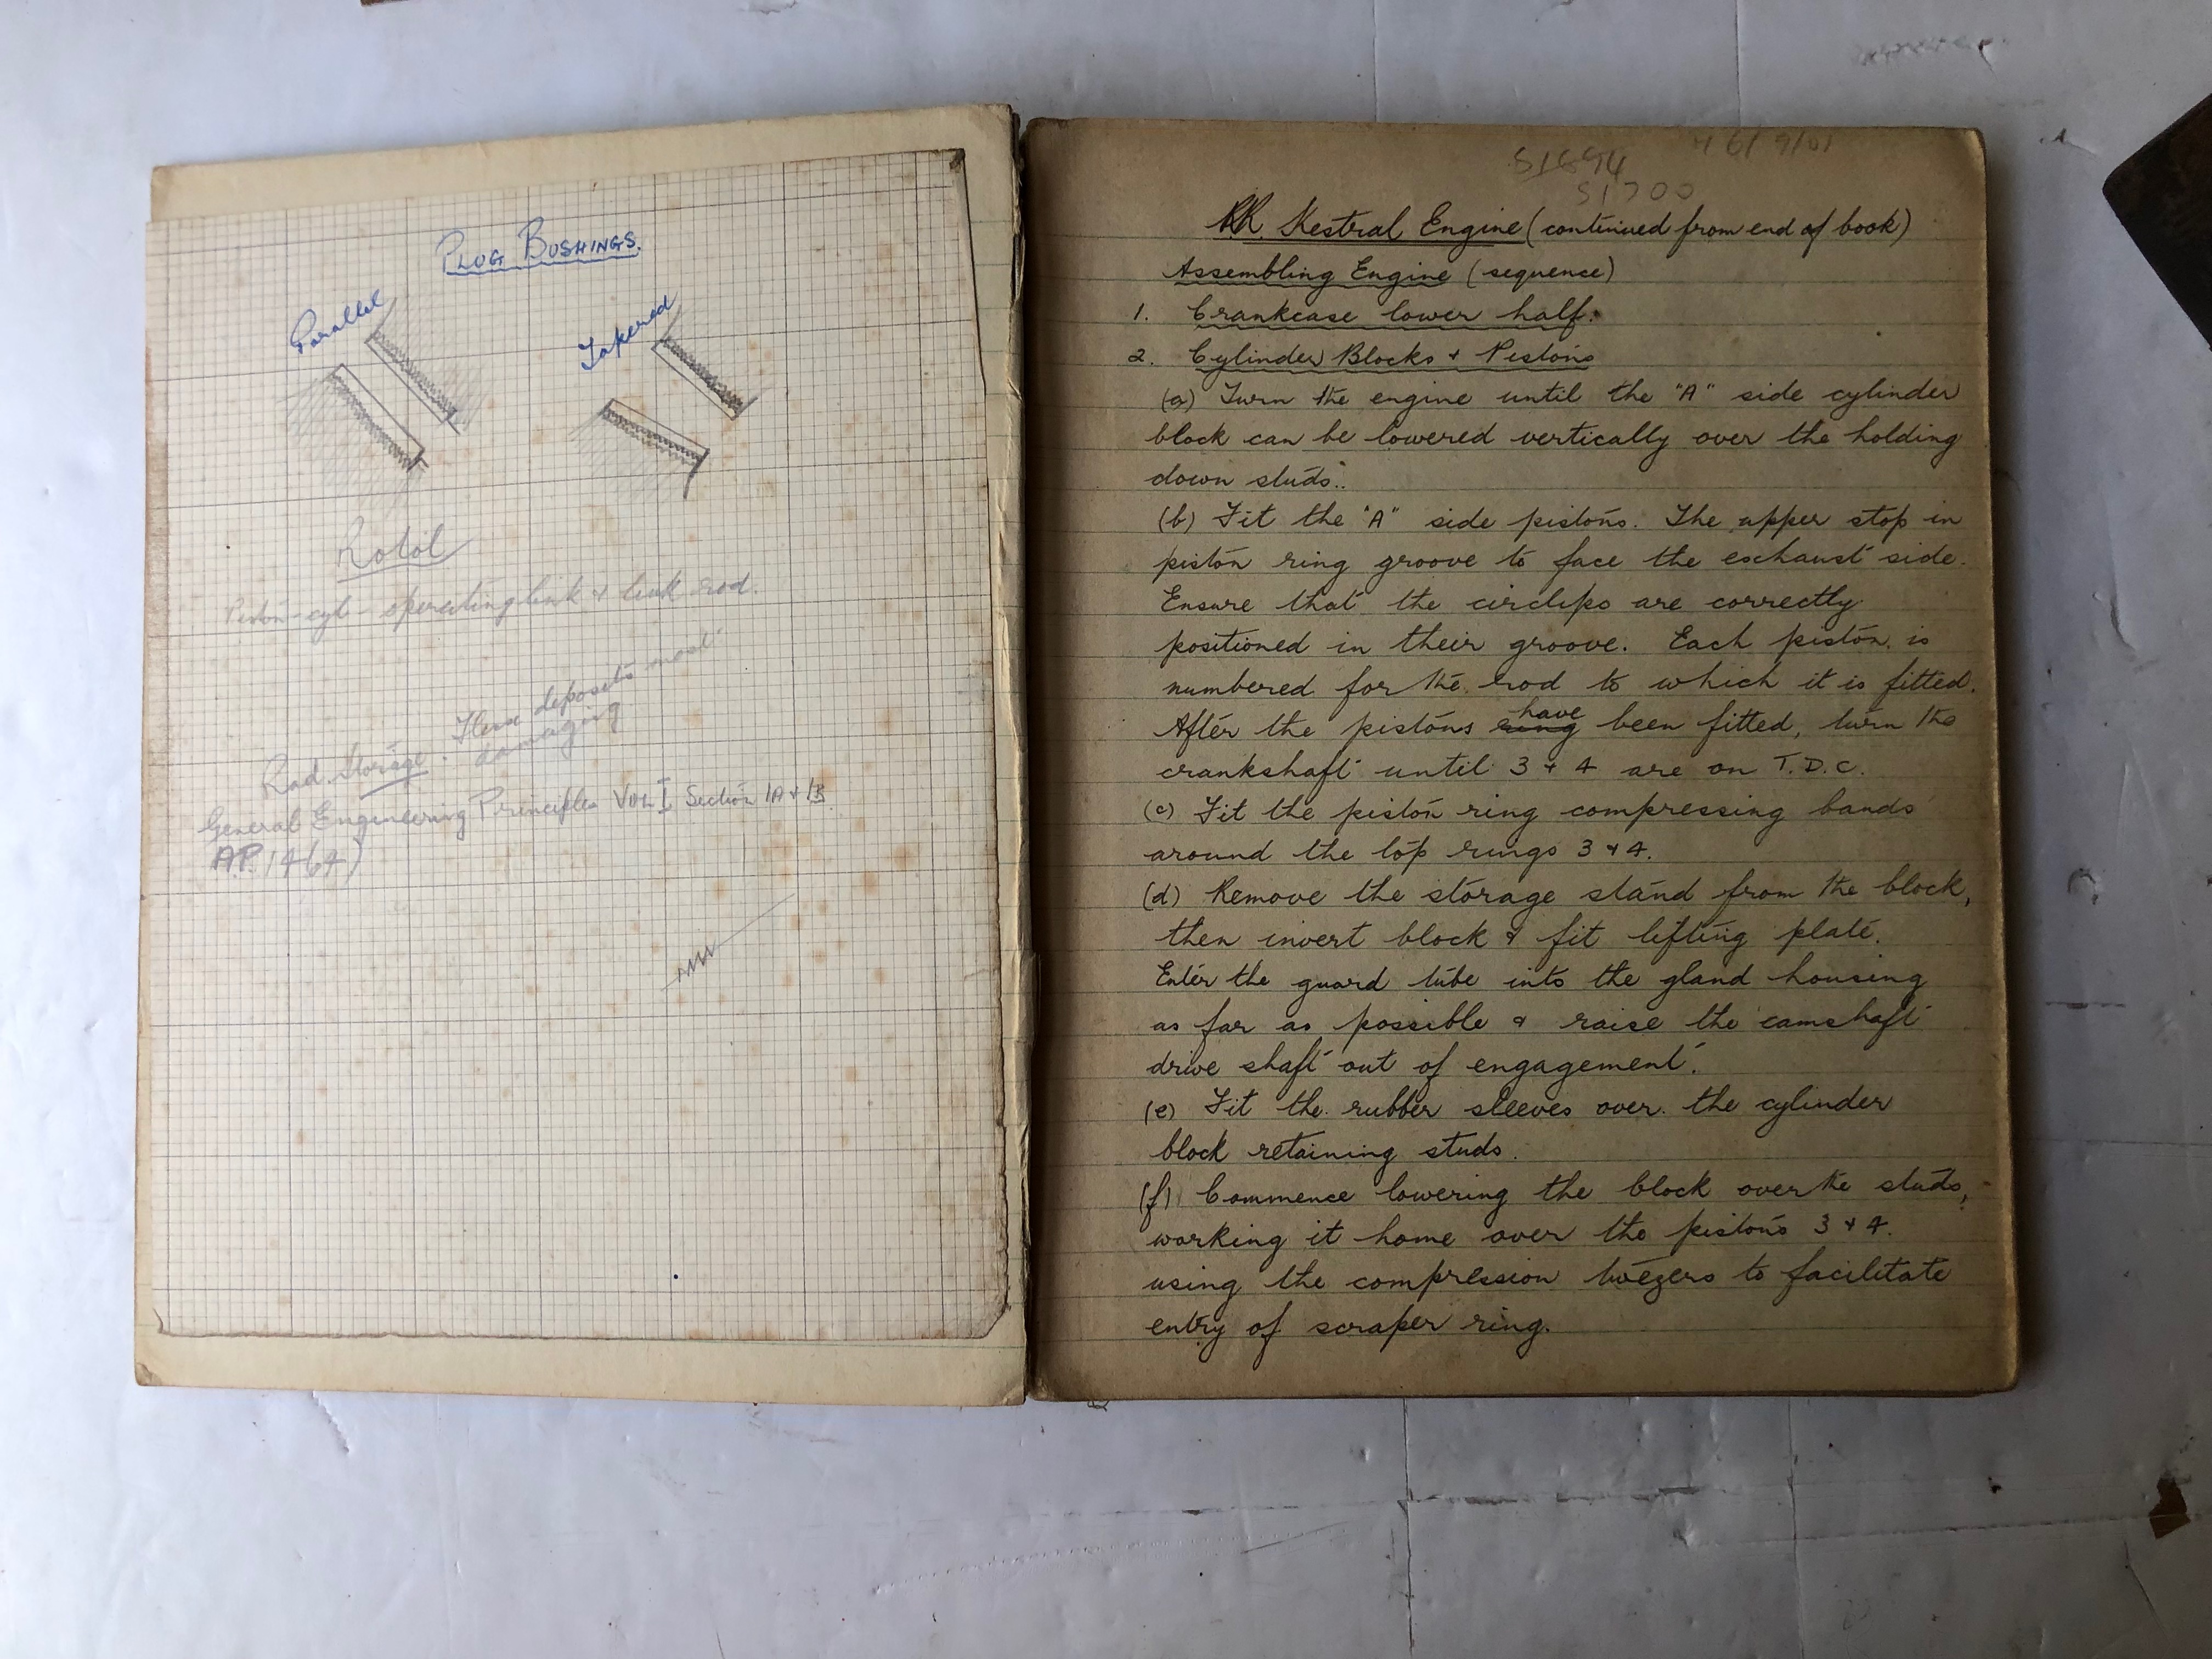 PLUG BUSHINGS.
Parallel
Tapered
Rotol
Piston - cyl - operating link & link rod.
These deposits most
damaging
Rad. Storage.
General Engineering Principles VOL I Section 1A & 1B.
A.P. 1464)
S1694
S1700
RR. Kestral Engine (continued from end of book)
Assembling Engine (sequence)
1. Crankcase lower half.
2. Cylinder Blocks & Pistons
(a) Turn the engine until the "A" side cylinder
block can be lowered vertically over the holding
down studs..
(b) Fit the "A" side pistons. The upper stop in
piston ring groove to face the exchaust side.
Ensure that the circlips are correctly
positioned in their groove. Each piston is
numbered for the rod to which it is fitted.
After the pistons have been fitted, turn the
crankshaft until 3 & 4 are on T.D.C.
(c) Fit the piston ring compressing bands
around the top rings 3 & 4.
(d) Remove the storage stand from the block,
then invert block & fit lifting plate.
Enter the guard tube into the gland housing
as far as possible & raise the camshaft
drive shaft out of engagement.
(e) Fit the rubber sleeves over the cylinder
block retaining studs.
(f) Commence lowering the block over the studs,
working it home over the pistons 3 & 4.
using the compression twezers to facilitate
entry of scraper ring.